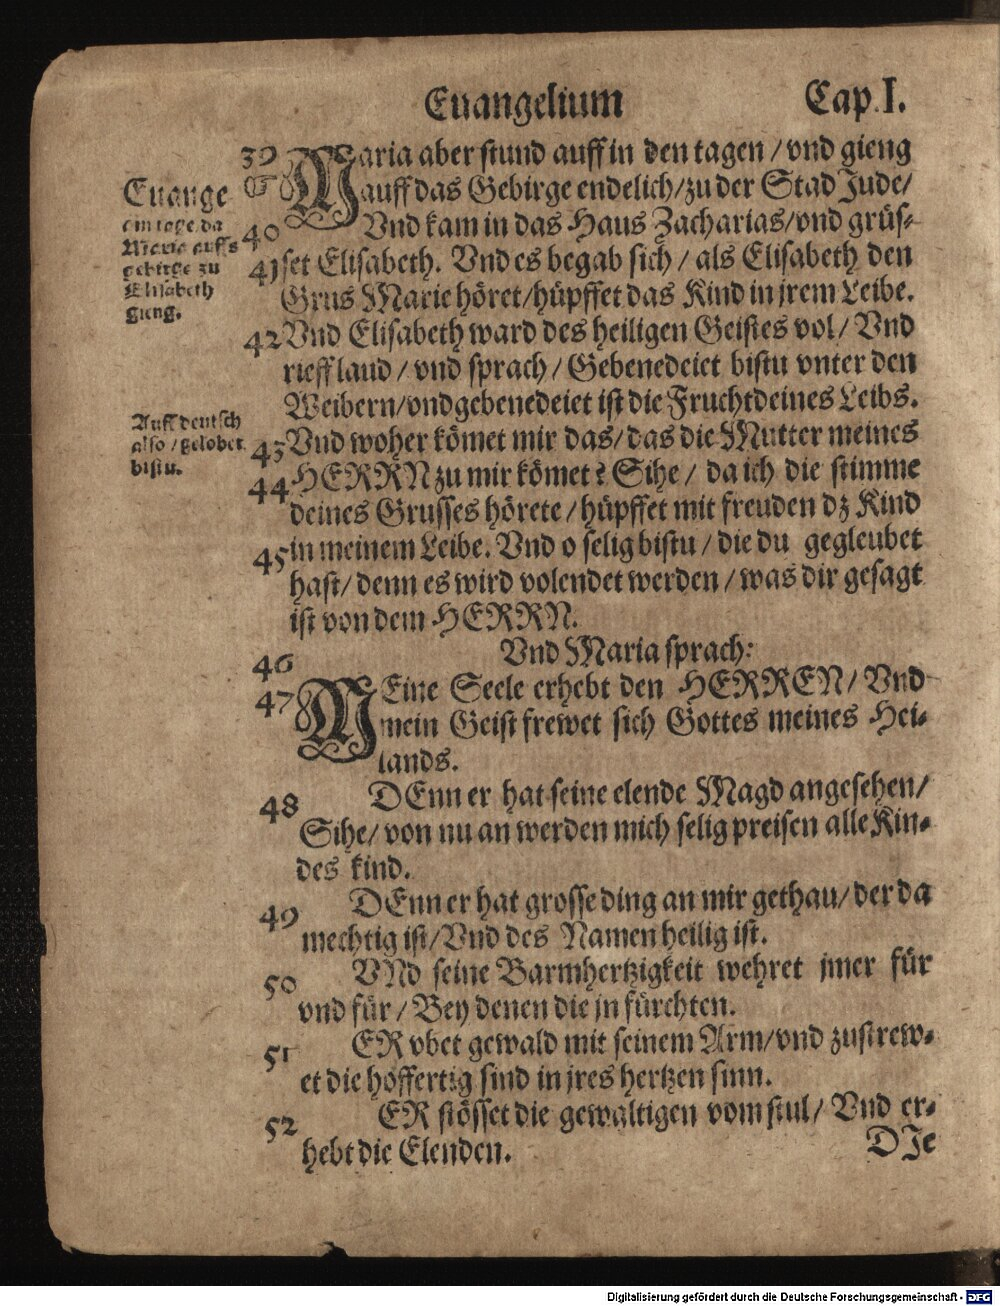 Euangelium Cap. I.
39 Maria aber stund auff in den tagen / vnd gieng
auff das Gebirge endelich/zu der Stad Jude/
40 Vnd kam in das Haus Zacharias/vnd grüs-
41 set Elisabeth. Vnd es begab sich / als Elisabeth den
Grus Marie höret/hüpffet das Kind in jrem Leibe.
42 Vnd Elisabeth ward des heiligen Geistes vol / Vnd
rieff laud / vnd sprach / Gebenedeiet bistu vnter den
Weibern/vnd gebenedeiet ist die Frucht deines Leibs.
43 Vnd woher kömet mir das/ das die Mutter meines
44 HERRN zu mir kömet? Sihe / da ich die stimme
deines Grusses hörete / hüpffet mit freuden dz Kind
45 in meinem Leibe. Vnd o selig bistu / die du gegleubet
hast/ denn es wird volendet werden / was dir gesagt
ist von dem HERRN.
46 Vnd Maria sprach:
47 MEine Seele erhebt den HERREN/ Vnd
mein Geist frewet sich Gottes meines Hei-
lands.
48 DEnn er hat seine elende Magd angesehen/
Sihe/ von nu an werden mich selig preisen alle Kin-
des kind.
49 DEnn er hat grosse ding an mir gethau/ der da
mechtig ist/Vnd des Namen heilig ist.
50 VNd seine Barmhertzigkeit wehret jmer für
vnd für / Bey denen die jn fürchten.
51 ER vbet gewald mit seinem Arm/vnd zustrew-
et die hoffertig sind in jres hertzen sinn.
52 ER stösset die gewaltigen vom stul/ Vnd er-
hebt die Elenden.
DJe
Euange
am tage da
Maria auffs
gebirge zu
Elisabeth
gieng.
Auff deutsch
also / gelobet
bistu.
Digitalisierung gefördert durch die Deutsche Forschungsgemeinschaft - DFG